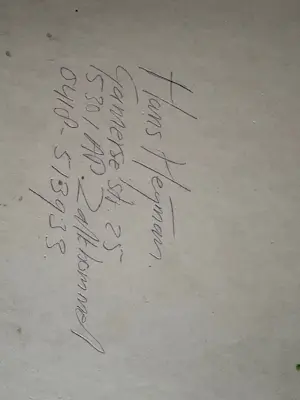 Hans Heijman.
Gamerse st. 25
5301 AD. Zaltbommel
0418-513933.